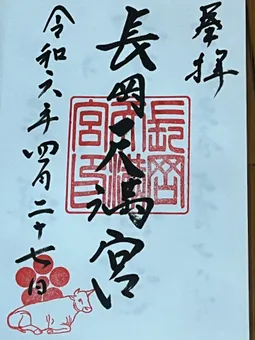 奉拝
長岡天満宮
令和六年四月二十七日